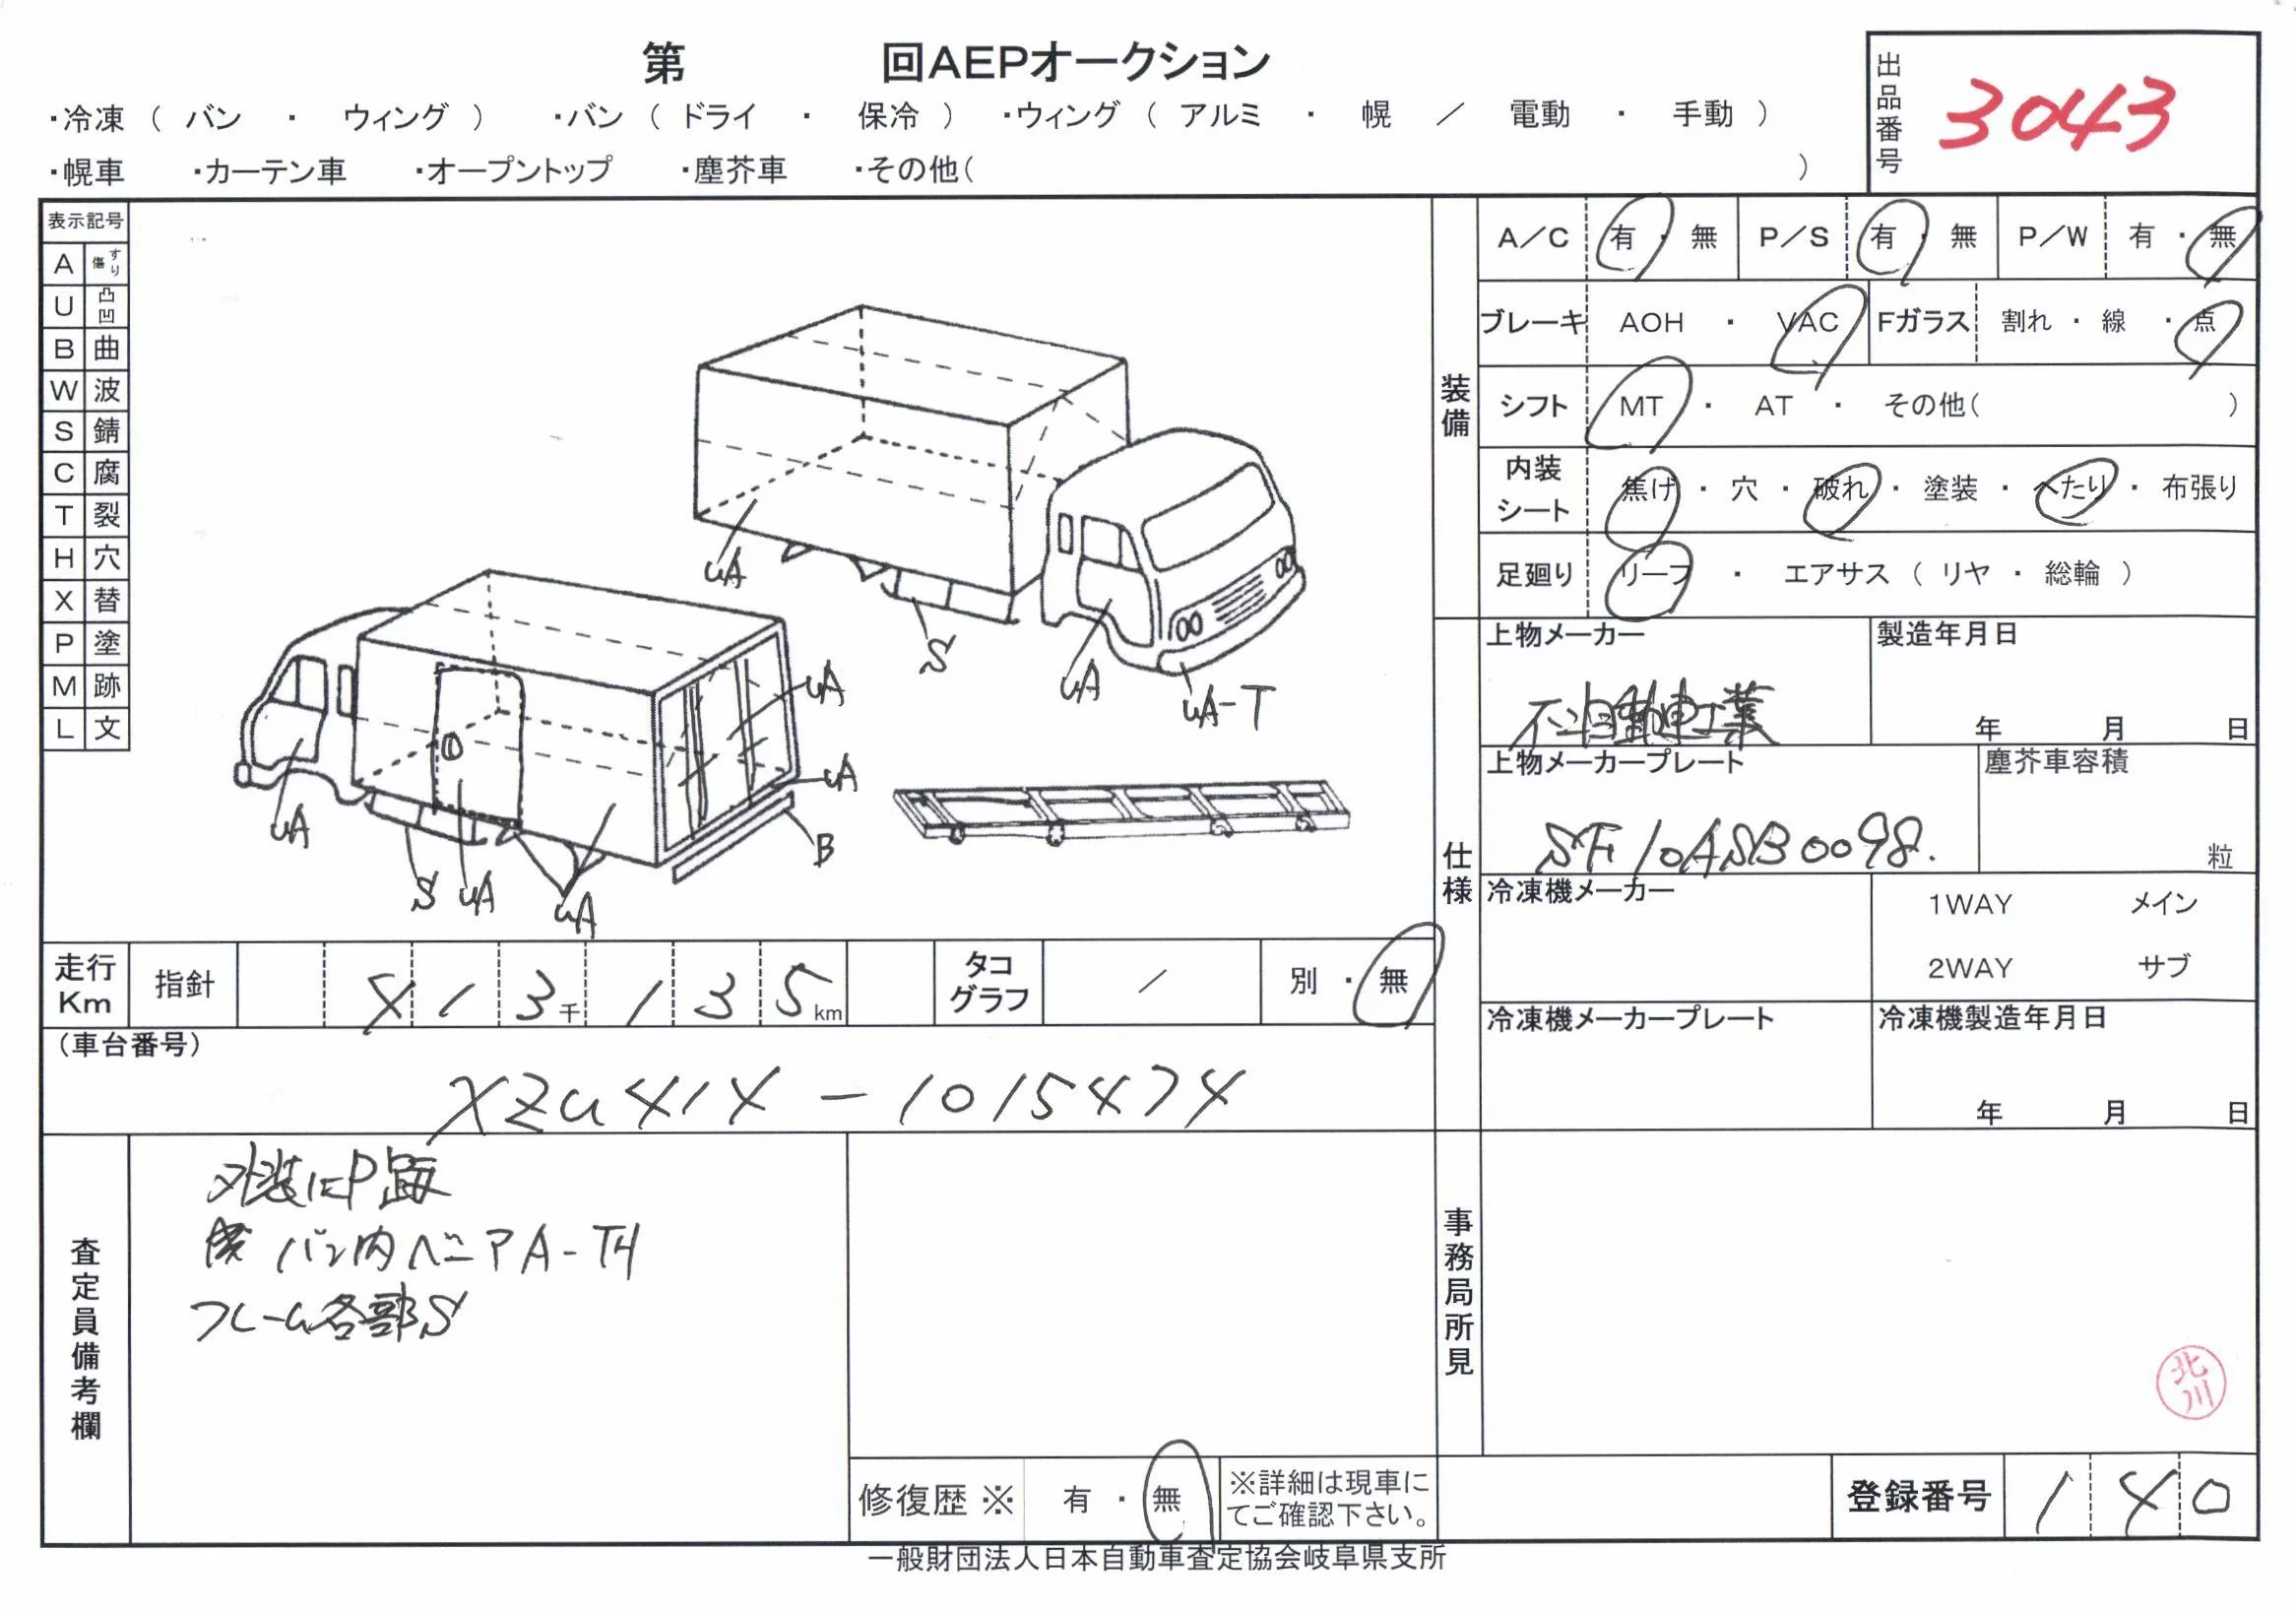 第 回AEPオークション
・冷凍 ( バン ・ ウィング ) ・バン ( ドライ ・ 保冷 ) ・ウィング ( アルミ ・ 幌 / 電動 ・ 手動 )
・幌車 ・カーテン車 ・オープントップ ・塵芥車 ・その他( )
出品番号 3043
表示記号
A すり傷
U 凸凹
B 曲
W 波
S 錆
C 腐
T 裂
H 穴
X 替
P 塗
M 跡
L 文
uA
S
uA
uA-T
uA
uA
B
uA
S
uA
uA
装備
A/C 有・無 P/S 有・無 P/W 有・無
ブレーキ AOH ・ VAC Fガラス 割れ・線・点
シフト MT ・ AT ・ その他( )
内装シート 焦げ・穴・破れ・塗装・へたり・布張り
足廻り リーフ ・ エアサス ( リヤ ・ 総輪 )
仕様
上物メーカー 製造年月日
自動車工業 年 月 日
上物メーカープレート 塵芥車容積
SF10ASB0098. 粒
冷凍機メーカー 1WAY メイン
2WAY サブ
冷凍機メーカープレート 冷凍機製造年月日
年 月 日
走行Km 指針 413千135km タコグラフ / 別・無
(車台番号)
XZU414-1015474
査定員備考欄
外装P跡
バン内ベニアA-TH
フレーム各部S
修復歴※ 有・無 ※詳細は現車にてご確認下さい。
事務局所見
北川
登録番号 140
一般財団法人日本自動車査定協会岐阜県支所